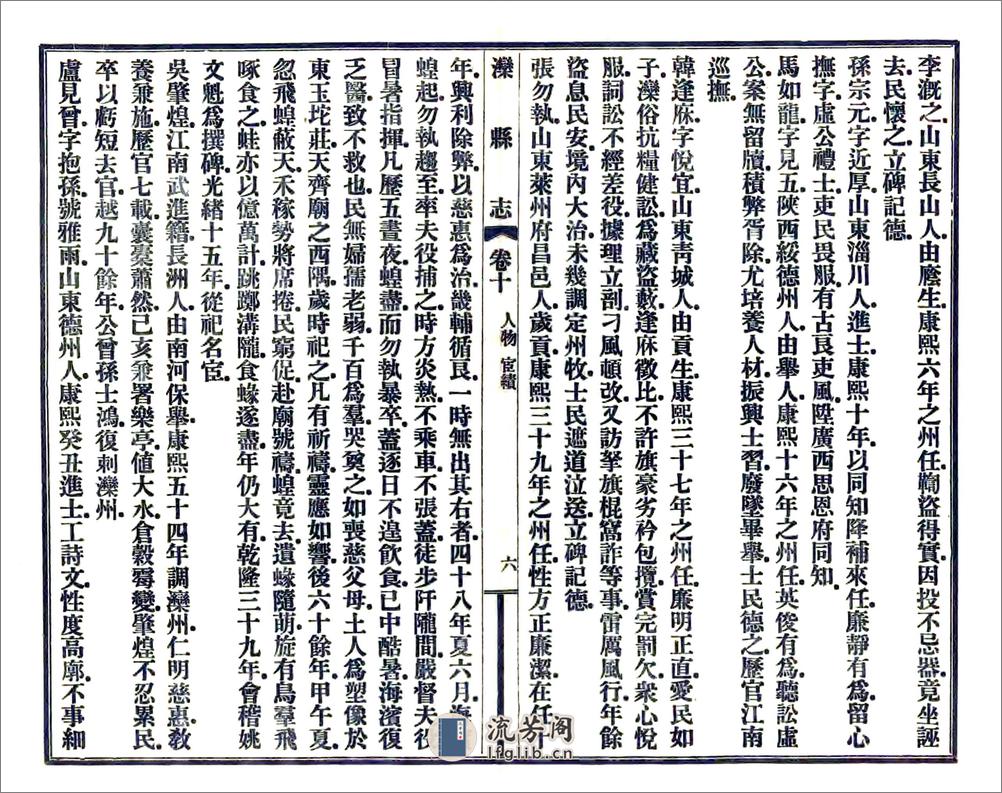 李漑之山東長山人由廕生康熙六年之州任鞫盜得實因投不忌器竟坐誣
去民懷之立碑記德
孫宗元字近厚山東淄川人進士康熙十年以同知降補來任廉靜有為留心
撫字虛公禮士吏民畏服有古良吏風陞廣西思恩府同知
馬如龍字見五陝西綏德州人由舉人康熙十六年之州任英俊有為聽訟虛
公案無留牘積弊胥除尤培養人材振興士習廢墜畢舉士民德之歷官江南
巡撫
韓逢庥字悅宜山東青城人由貢生康熙三十七年之州任廉明正直愛民如
子灤俗抗糧健訟為藏盜藪逢庥徵比不許旗豪劣衿包攬賞完罰欠衆心悅
服詞訟不經差役據理立剖刁風頓改又訪拏旗棍窩詐等事雷厲風行年餘
盜息民安境內大治未幾調定州牧士民遮道泣送立碑記德
張勿執山東萊州府昌邑人歲貢康熙三十九年之州任性方正廉潔在任十
灤縣志 卷十 人物 宦績 六
年興利除弊以慈惠為治畿輔循良一時無出其右者四十八年夏六月海
蝗起勿執趨至率夫役捕之時方炎熱不乘車不張蓋徒步阡隴間嚴督夫役
冒暑指揮凡歷五晝夜蝗盡而勿執暴卒蓋逐日不遑飲食已中酷暑海濱復
乏醫致不救也民無婦孺老弱千百為羣哭奠之如喪慈父母土人為塑像於
東玉坨莊天齊廟之西隅歲時祀之凡有祈禱靈應如響後六十餘年甲午夏
忽飛蝗蔽天禾稼勢將席捲民窮促赴廟號禱蝗竟去遺蝝隨萌旋有鳥羣飛
啄食之蛙亦以億萬計跳躑溝隴食蝝遂盡年仍大有乾隆三十九年會稽姚
文魁為撰碑光緒十五年從祀名宦
吳肇煌江南武進籍長洲人由南河保舉康熙五十四年調灤州仁明慈惠敎
養兼施歷官七載囊橐蕭然己亥兼署樂亭値大水倉穀霉變肇煌不忍累民
卒以虧短去官越九十餘年公曾孫士鴻復刺灤州
盧見曾字抱孫號雅雨山東德州人康熙癸丑進士工詩文性度高廓不事細
流芳阁
lfglib.cn